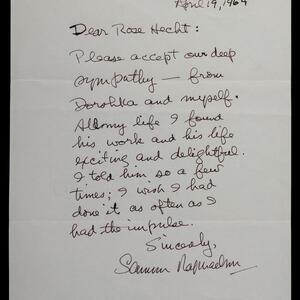 April 19, 1964
Dear Rose Hecht:
Please accept our deep
sympathy — from
Dorshka and myself.
All my life I found
his work and his life
exciting and delightful.
I told him so a few
times; I wish I had
done it as often as I
had the impulse.
Sincerely,
Samson Raphaelson